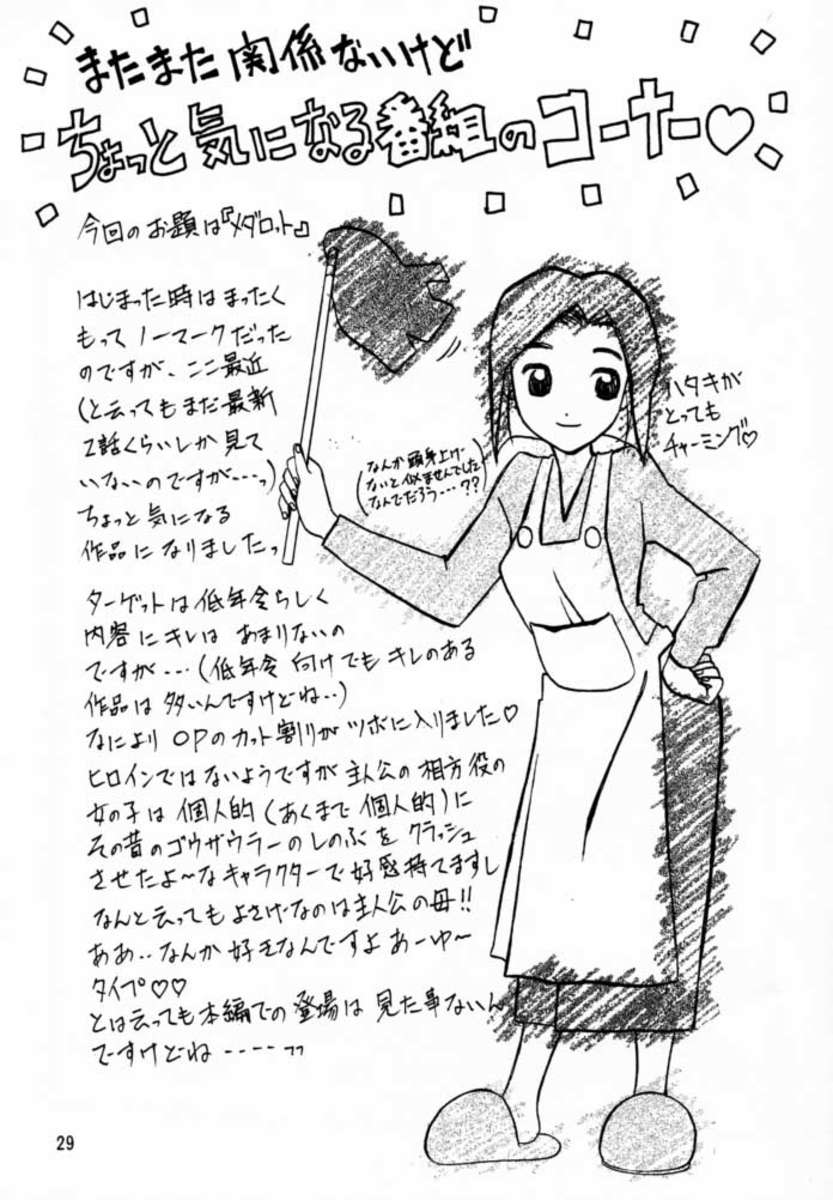 またまた関係ないけど
ちょっと気になる番組のコーナー♡
今回のお題は『メダロット』
はじまった時はまったく
もってノーマークだった
のですが、ここ最近
(と云ってもまだ最新
2話くらいしか見て
いないのですが---っ)
ちょっと気になる
作品になりましたっ
ハタキが
とっても
チャーミング♡
(なんか頭身上げ
ないと似ませんでした
なんでだろう---??)
ターゲットは低年令らしく
内容にキレは あまりないの
ですが---(低年令向けでもキレのある
作品は多いんですけどね--)
なにより OPのカット割りがツボに入りました♡
ヒロインではないようですが主人公の相方役の
女の子は個人的(あくまで個人的)に
その昔のゴウザウラーのしのぶを クラッシュ
させたよ〜なキャラクターで好感持てますし
なんと云ってもよさげなのは主人公の母!!
ああ--なんか好きなんですよあーゆ〜
タイプ♡♡
とは云っても本編での登場は 見た事ないん
ですけどね ----っっ
29